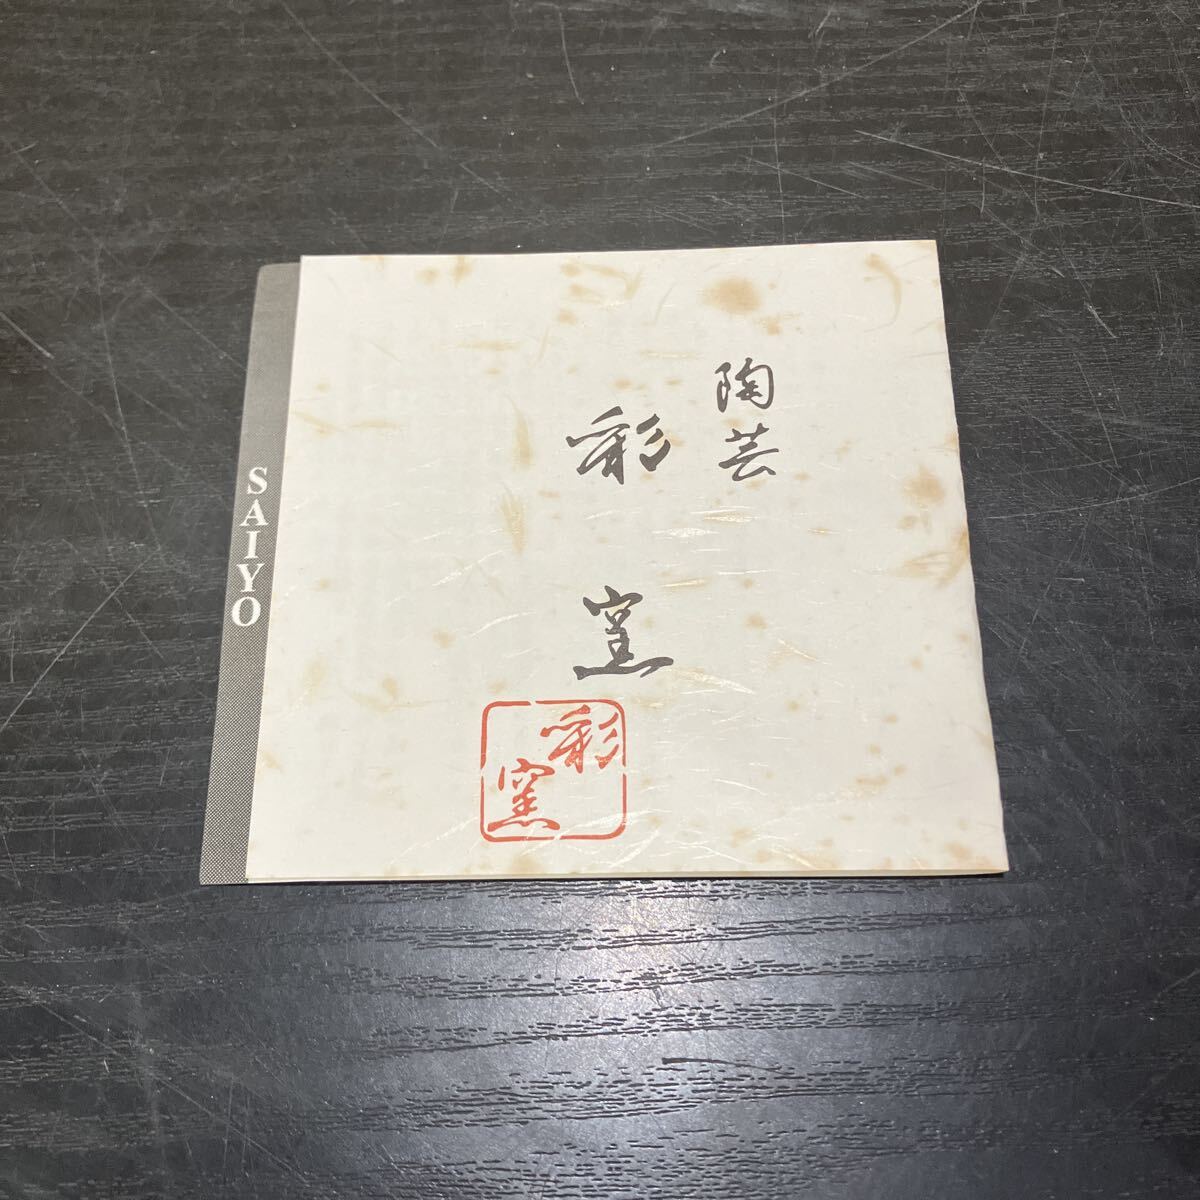 陶芸
彩窯
彩
窯
SAIYO